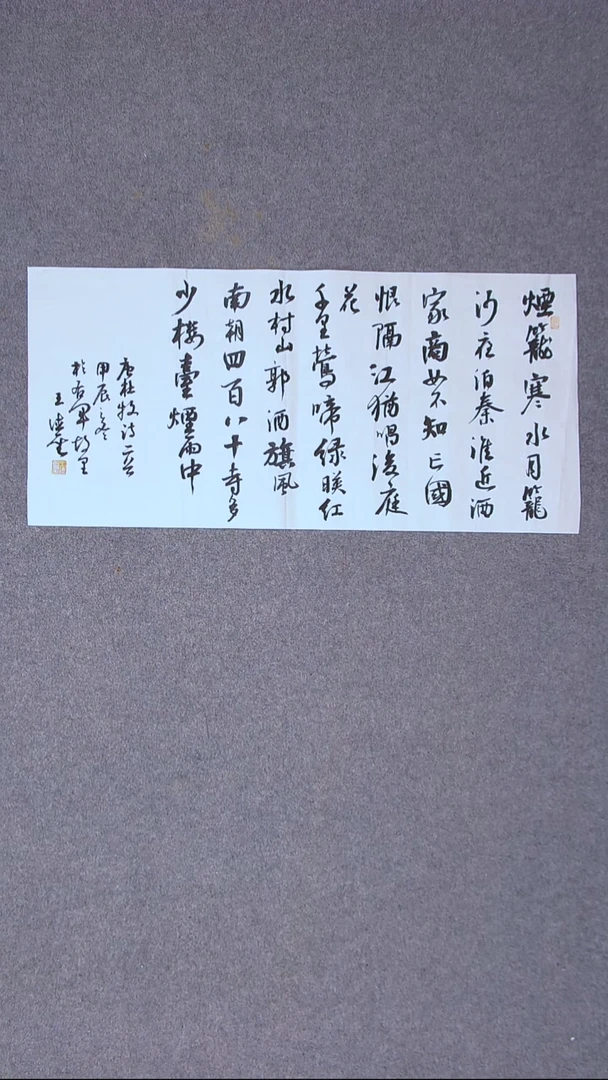 煙籠寒水月籠
沙夜泊秦淮近酒
家商女不知亡國
恨隔江猶唱後庭
花
千里鶯啼绿暎红
水村山郭酒旗風
南朝四百八十寺多
少樓臺煙雨中
唐杜牧诗二首
甲辰之冬
於右軍故里
王